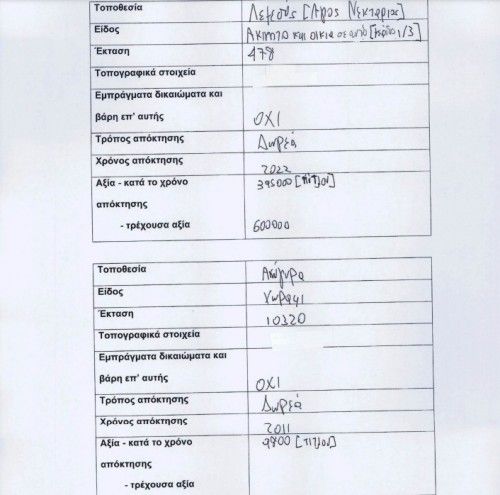 Τοποθεσία Λεμεσός [Αγιος Νεκταριος]
Είδος Ακινητο και οικια σε αυτό [μερίδιο 1/3]
Έκταση 478
Τοπογραφικά στοιχεία
Εμπράγματα δικαιώματα και
βάρη επ' αυτής ΟΧΙ
Τρόπος απόκτησης Δωρεά
Χρόνος απόκτησης 2022
Αξία - κατά το χρόνο 395000 [τίτλου]
απόκτησης
- τρέχουσα αξία 600000
Τοποθεσία
Είδος Χωραφι
Έκταση 10320
Τοπογραφικά στοιχεία
Εμπράγματα δικαιώματα και
βάρη επ' αυτής ΟΧΙ
Τρόπος απόκτησης Δωρεά
Χρόνος απόκτησης 2011
Αξία - κατά το χρόνο 9800 [τίτλου]
απόκτησης
- τρέχουσα αξία